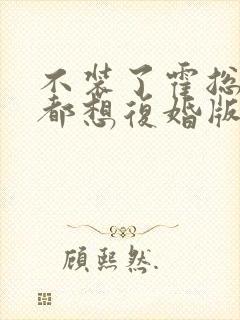 不装了霍总
都想復婚版
顧熙然.